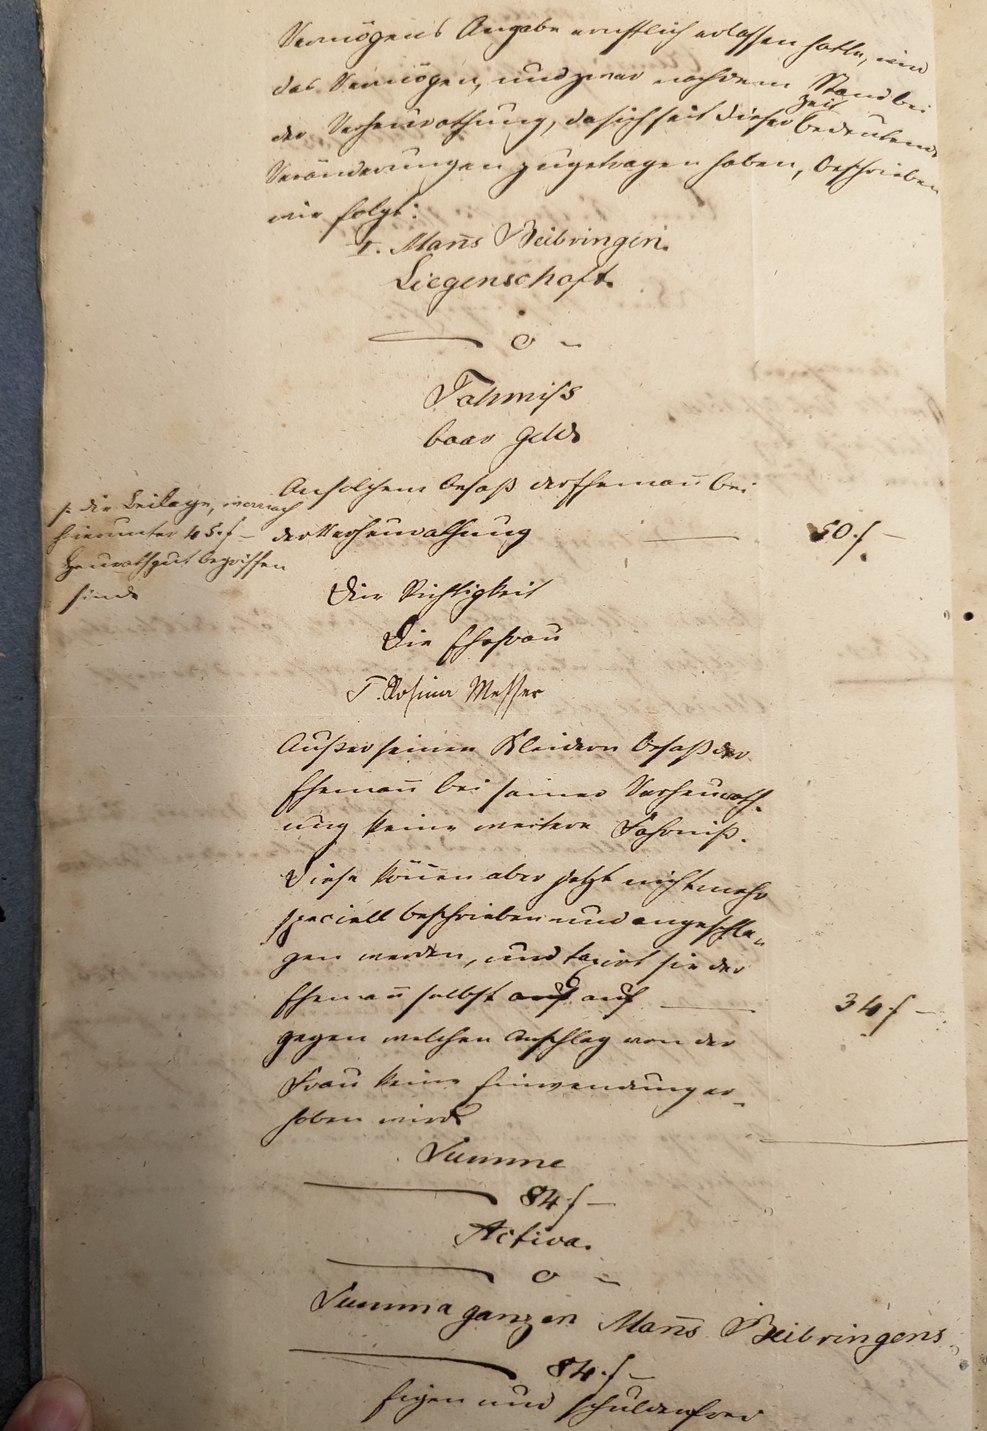 Vermögens Angabe ernstlich erlassen hatte, wird
das Vermögen, und zwar nach dem Stand bei
der Verheurathung, da sich seit dieser Zeit bedeutende
Veränderungen zugetragen haben, beschrieben
wie folgt:
I. Mans Beibringen.
Liegenschaft.
— 0 —
Fahrniss
baar Geld
An solchem besaß der Eheman bei
der Verheurathung — 50 f —
s. die Beilage, wornach
hierunter 45 f —
Heurathgut begriffen
sind
Die Richtigkeit
Die Ehefrau
T. Rosina Messer
Außer seinen Kleidern besaß der
Eheman bei seiner Verheurath-
ung keine weitere Fahrniß.
Diese könen aber jetzt nicht mehr
speciell beschrieben und angeschla-
gen werden, und taxirt sie der
Eheman selbst auf auf — 34 f —
gegen welchen Anschlag von der
Frau keine Einwendung er-
hoben wird
Summe
— 84 f —
Activa.
— 0 —
Summa ganzen Mans Beibringens
— 84 f —
eigen und schuldenfrei